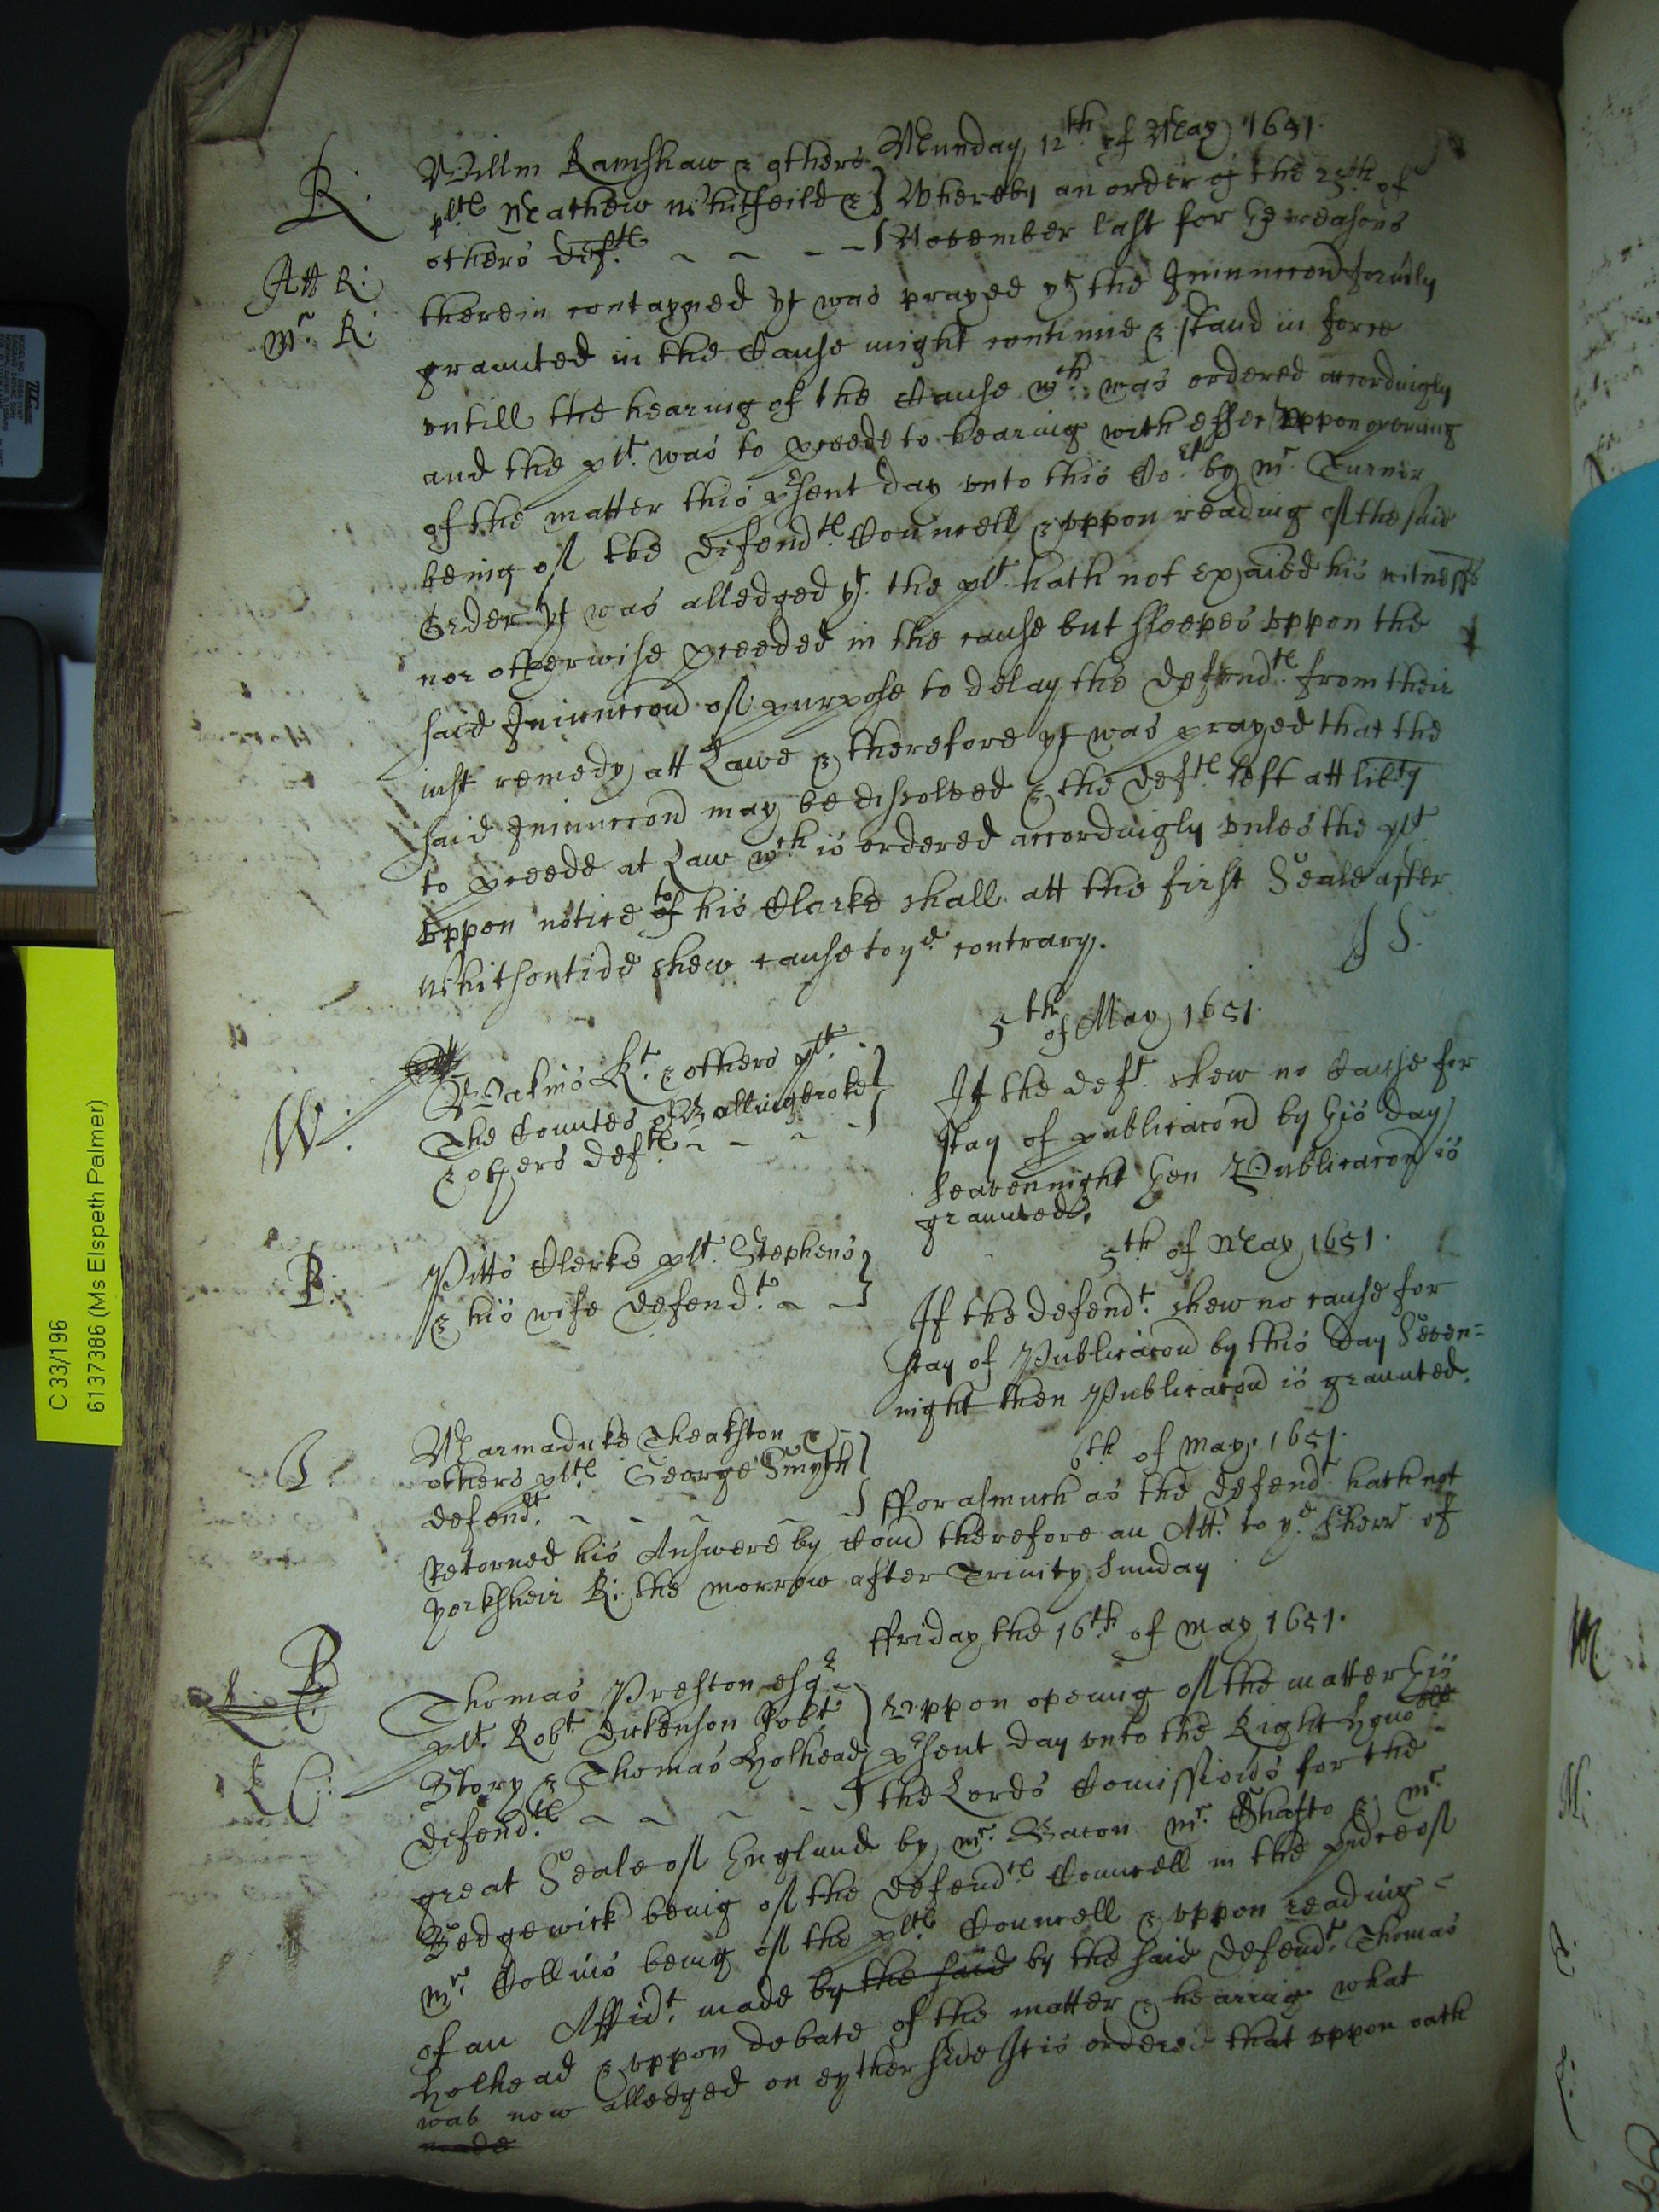 Munday 12th of May 1651.
R: Willm Ramshaw & others
plts Mathew Whitfeild & Whereby an order of the 25th of
others defts November last for the reasons
Att R:
Mr R:
therein contayned yt was prayed yt the Iniunccon formly
graunted in the Cause might continue & stand in force
untill the hearing of the Cause wch was ordered accordingly
and the plt. was to pceede to hearing with effect Uppon opening
of the matter this psent day unto this Cort by mr Turner
being of the defendts Councell & uppon reading of the said
Order yt was alledged yt the plt. hath not exaied his witnesses
nor otherwise pceeded in the cause but sleepes uppon the
said Iniunccon of purpose to delay the defendts from their
iust remedy att Lawe & therefore yt was prayed that the
said Iniunccon may be dissolved & the defts left att libty
to pceede at Law wch is ordered accordingly unles the plt
uppon notice to his Clarke shall att the first Seale after
Whitsontide shew cause to ye contrary.
J S.
5th of May 1651.
W: Wakins Kt. & others plts.
The Countes of Ballingbroke
& others defts
If the deft. shew no Cause for
stay of publicacon by this day
seavennight then Publicacon is
graunted.
5th of May 1651.
P: Pitts Clerke plt. Stephens
& his wife defendts
If the defendt. shew no cause for
stay of Publicacon by this Day Seven=
night then Publicacon is graunted.
6th of May 1651.
Marmaduke Theakston &
others plts George Smyth
defendt. fforasmuch as the defendt hath not
retorned his Answere by Com therefore an Att. to ye Sherr of
Yorksheir R: the morrow after Trinity Sunday
ffriday the 16th of May 1651.
P:
L C:
Thomas Preston esqr
plt. Robt Dickenson Robt Uppon opening of the matter this
Story & Thomas Holhead psent day unto the Right Honoble
defendts the Lords Comissiors for the
great Seale of England by mr. Bacon mr. Shafto & mr.
Sedgewick being of the defendts Councell in the pndce of
mr. Collins being of the plts Councell & uppon reading
of an Affidt. made by the said by the said defendt. Thomas
Holhead & uppon debate of the matter & hearing what
was now alledged on eyther side It is ordered that uppon oath
made
C 33/196
6137386 (Ms Elspeth Palmer)